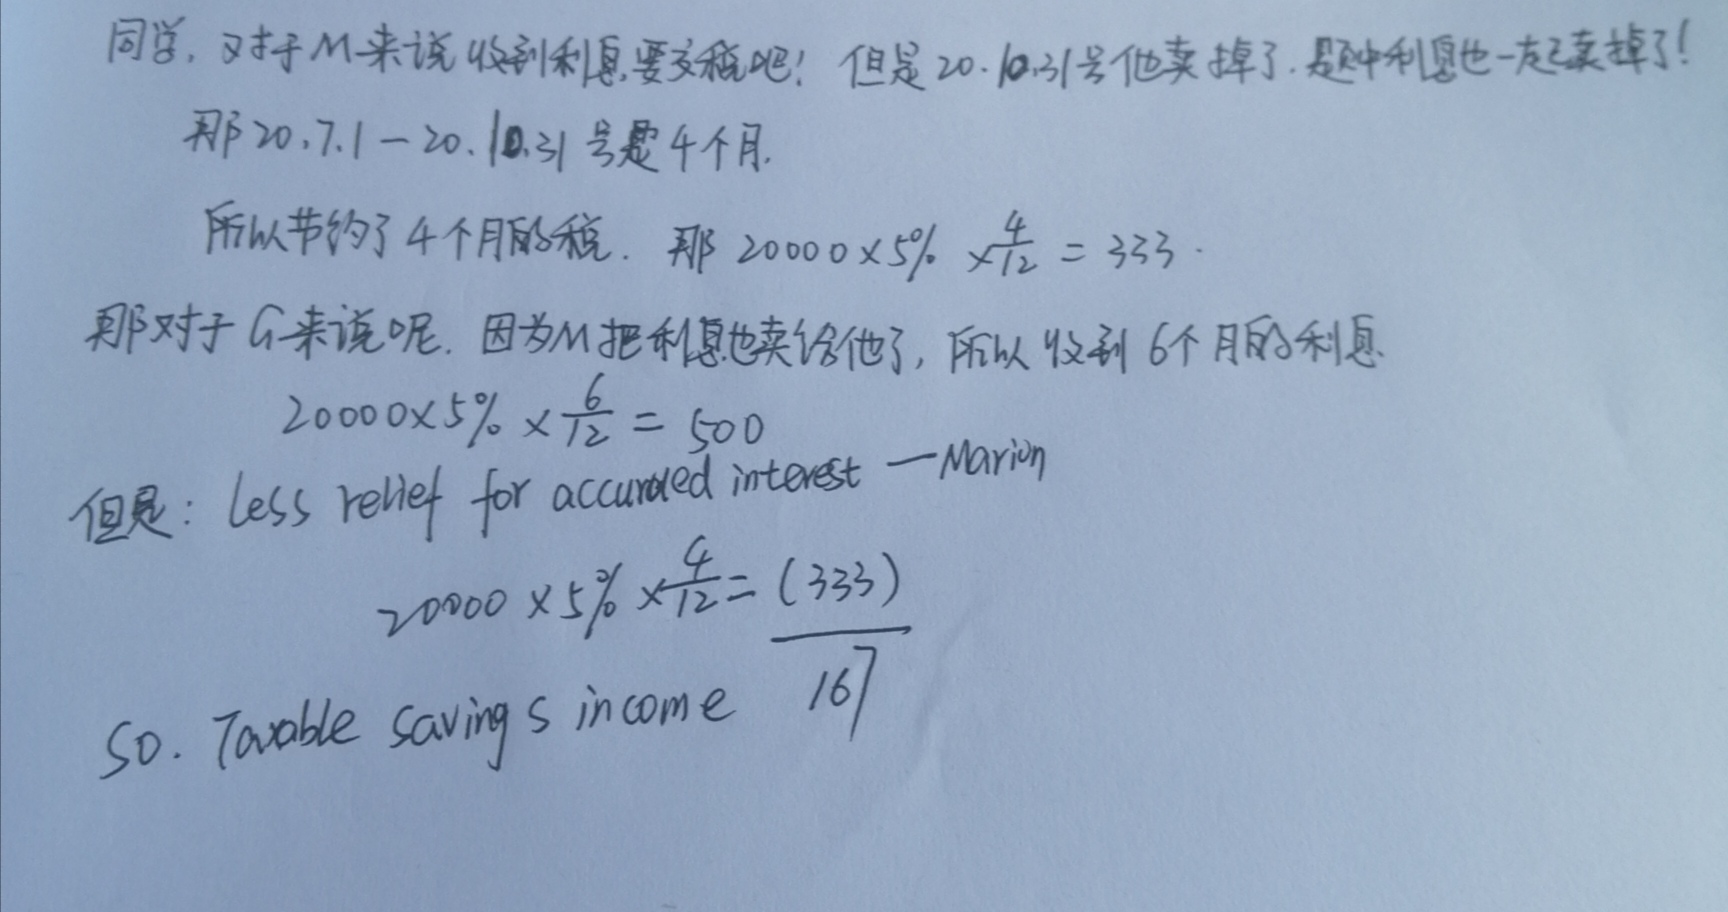 同学,对于M来说收到利息要交税吧!但是20.10.31号他卖掉了.题中利息也一起卖掉了!
那20.7.1—20.10.31号是4个月.
所以节约了4个月的税. 那 20000×5% ×4/12 = 333.
那对于G来说呢.因为M把利息也卖给他了,所以收到6个月的利息.
20000×5% × 6/12 = 500
但是: Less relief for accuraded interest —Marion
20000 × 5% × 4/12 = (333)
167
SO. Taxable savings income